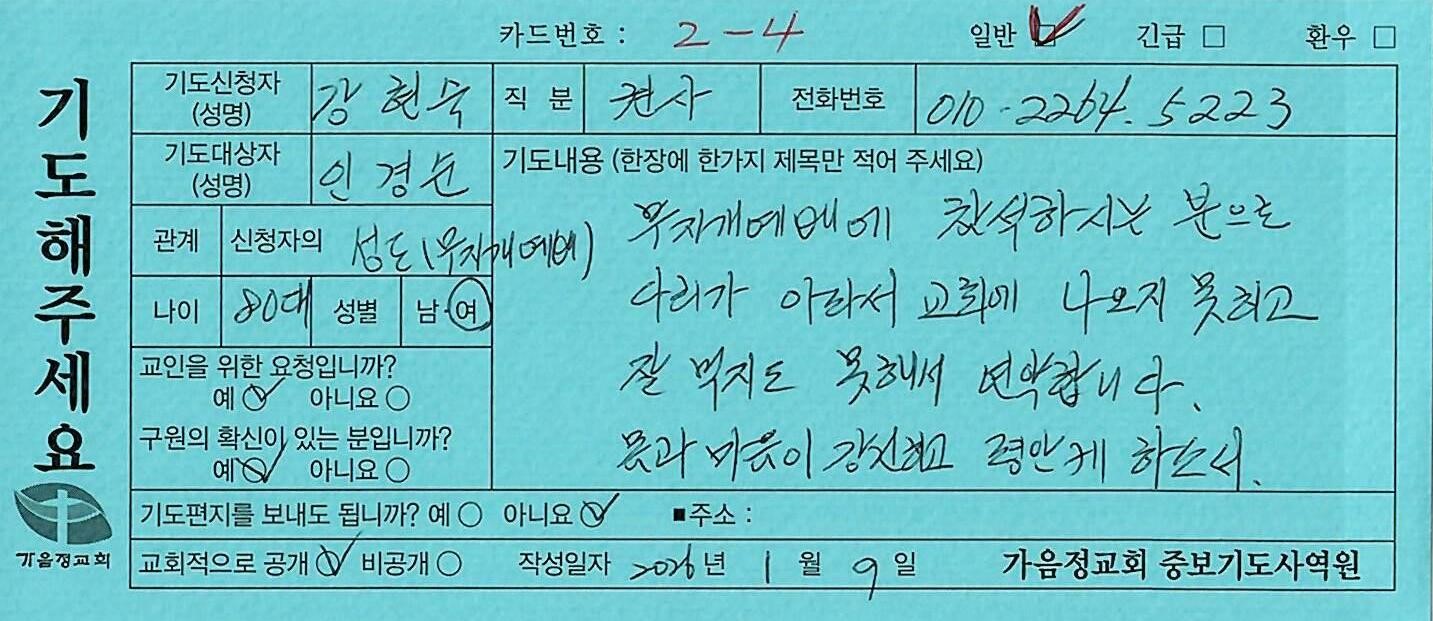 카드번호 : 2-4 일반 ☑ 긴급 □ 환우 □
기도해주세요
기도신청자 (성명) 강현숙 직 분 권사 전화번호 010-2264.5223
기도대상자 (성명) 인경순
관계 신청자의 성도(무지개예배)
나이 80대 성별 남·여
교인을 위한 요청입니까?
예 ☑ 아니요 ○
구원의 확신이 있는 분입니까?
예 ☑ 아니요 ○
기도내용 (한장에 한가지 제목만 적어 주세요)
무지개예배에 참석하시는 분으로
다리가 아파서 교회에 나오지 못하고
잘 먹지도 못해서 연약합니다.
몸과 마음이 강건하고 평안케 하소서.
기도편지를 보내도 됩니까? 예 ○ 아니요 ☑ ■주소 :
교회적으로 공개 ☑ 비공개 ○ 작성일자 2026년 1월 9일 가음정교회 중보기도사역원
가음정교회